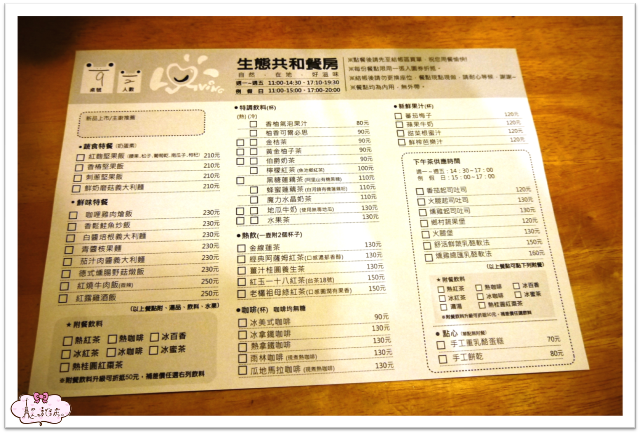 9
桌號
2
人數
Lovvive
生態共和餐房
自然、在地、好滋味
週一~週五 11:00-14:30、17:10-19:30
例 假 日 11:00-15:00、17:00-20:00
※餐點均為內用，無外帶。
新品上市/主廚推薦
●蔬食特餐 (奶蛋素)
紅麴堅果飯 210元
香椿堅果飯 210元
剝蔥堅果飯 210元
鮮奶磨菇義大利麵 210元
●鮮味特餐
咖哩雞肉燴飯 230元
香鬆鮭魚炒飯 230元
白醬培根義大利麵 230元
青醬梭果麵 230元
茄汁肉醬義大利麵 230元
德式燻腸野菇燉飯 230元
紅燒牛肉飯 250元
紅露雞酒飯 250元
(以上餐點附、湯品、飲料、水果)
★附餐飲料
熱紅茶 熱咖啡 冰百香
冰紅茶 冰咖啡 冰蜜茶
熱桂圓紅棗茶
※附餐飲料升級可折抵50元，補差價任選右列飲料
●特調飲料(杯)
(熱) (冷)
香柚氣泡果汁 80元
柚香可爾必思 90元
金桔茶 90元
黃金柚子茶 90元
伯爵奶茶 90元
檸檬紅茶 100元
黑糖蓮藕茶 110元
蜂蜜蓮藕茶 110元
魔力水晶奶茶 110元
地瓜牛奶 110元
水果茶 130元
●熱飲(一壺附2個杯子)
金線蓮茶 130元
經典阿薩姆紅茶 130元
薑汁桂圓養生茶 130元
紅玉一十八紅茶 (台茶18號) 150元
老欉祖母綠紅茶 150元
●咖啡(杯) 咖啡均無糖
冰美式咖啡 90元
冰拿鐵咖啡 130元
熱拿鐵咖啡 130元
雨林咖啡 130元
瓜地馬拉咖啡 130元
●新鮮果汁(杯)
蕃茄梅子 120元
蘋果牛奶 120元
甜菜根蜜汁 120元
鮮榨芭樂汁 120元
下午茶供應時間
週一~週五：14：30~17：00
例 假 日：15：00~17：00
香蒜起司吐司 120元
火腿起司吐司 130元
燻雞起司吐司 130元
鄉村蔬果堡 120元
火腿堡 130元
野活鮮蔬乳酪軟法 150元
燻雞總匯乳酪軟法 160元
(以上餐點可點下列附餐)
★附餐飲料
熱紅茶 熱咖啡 冰百香
冰紅茶 冰咖啡 冰蜜茶
濃湯 熱桂圓紅棗茶
※附餐飲料升級可折抵50元，補差價任選飲料
●點心
手工重乳酪蛋糕 70元
手工餅乾 80元